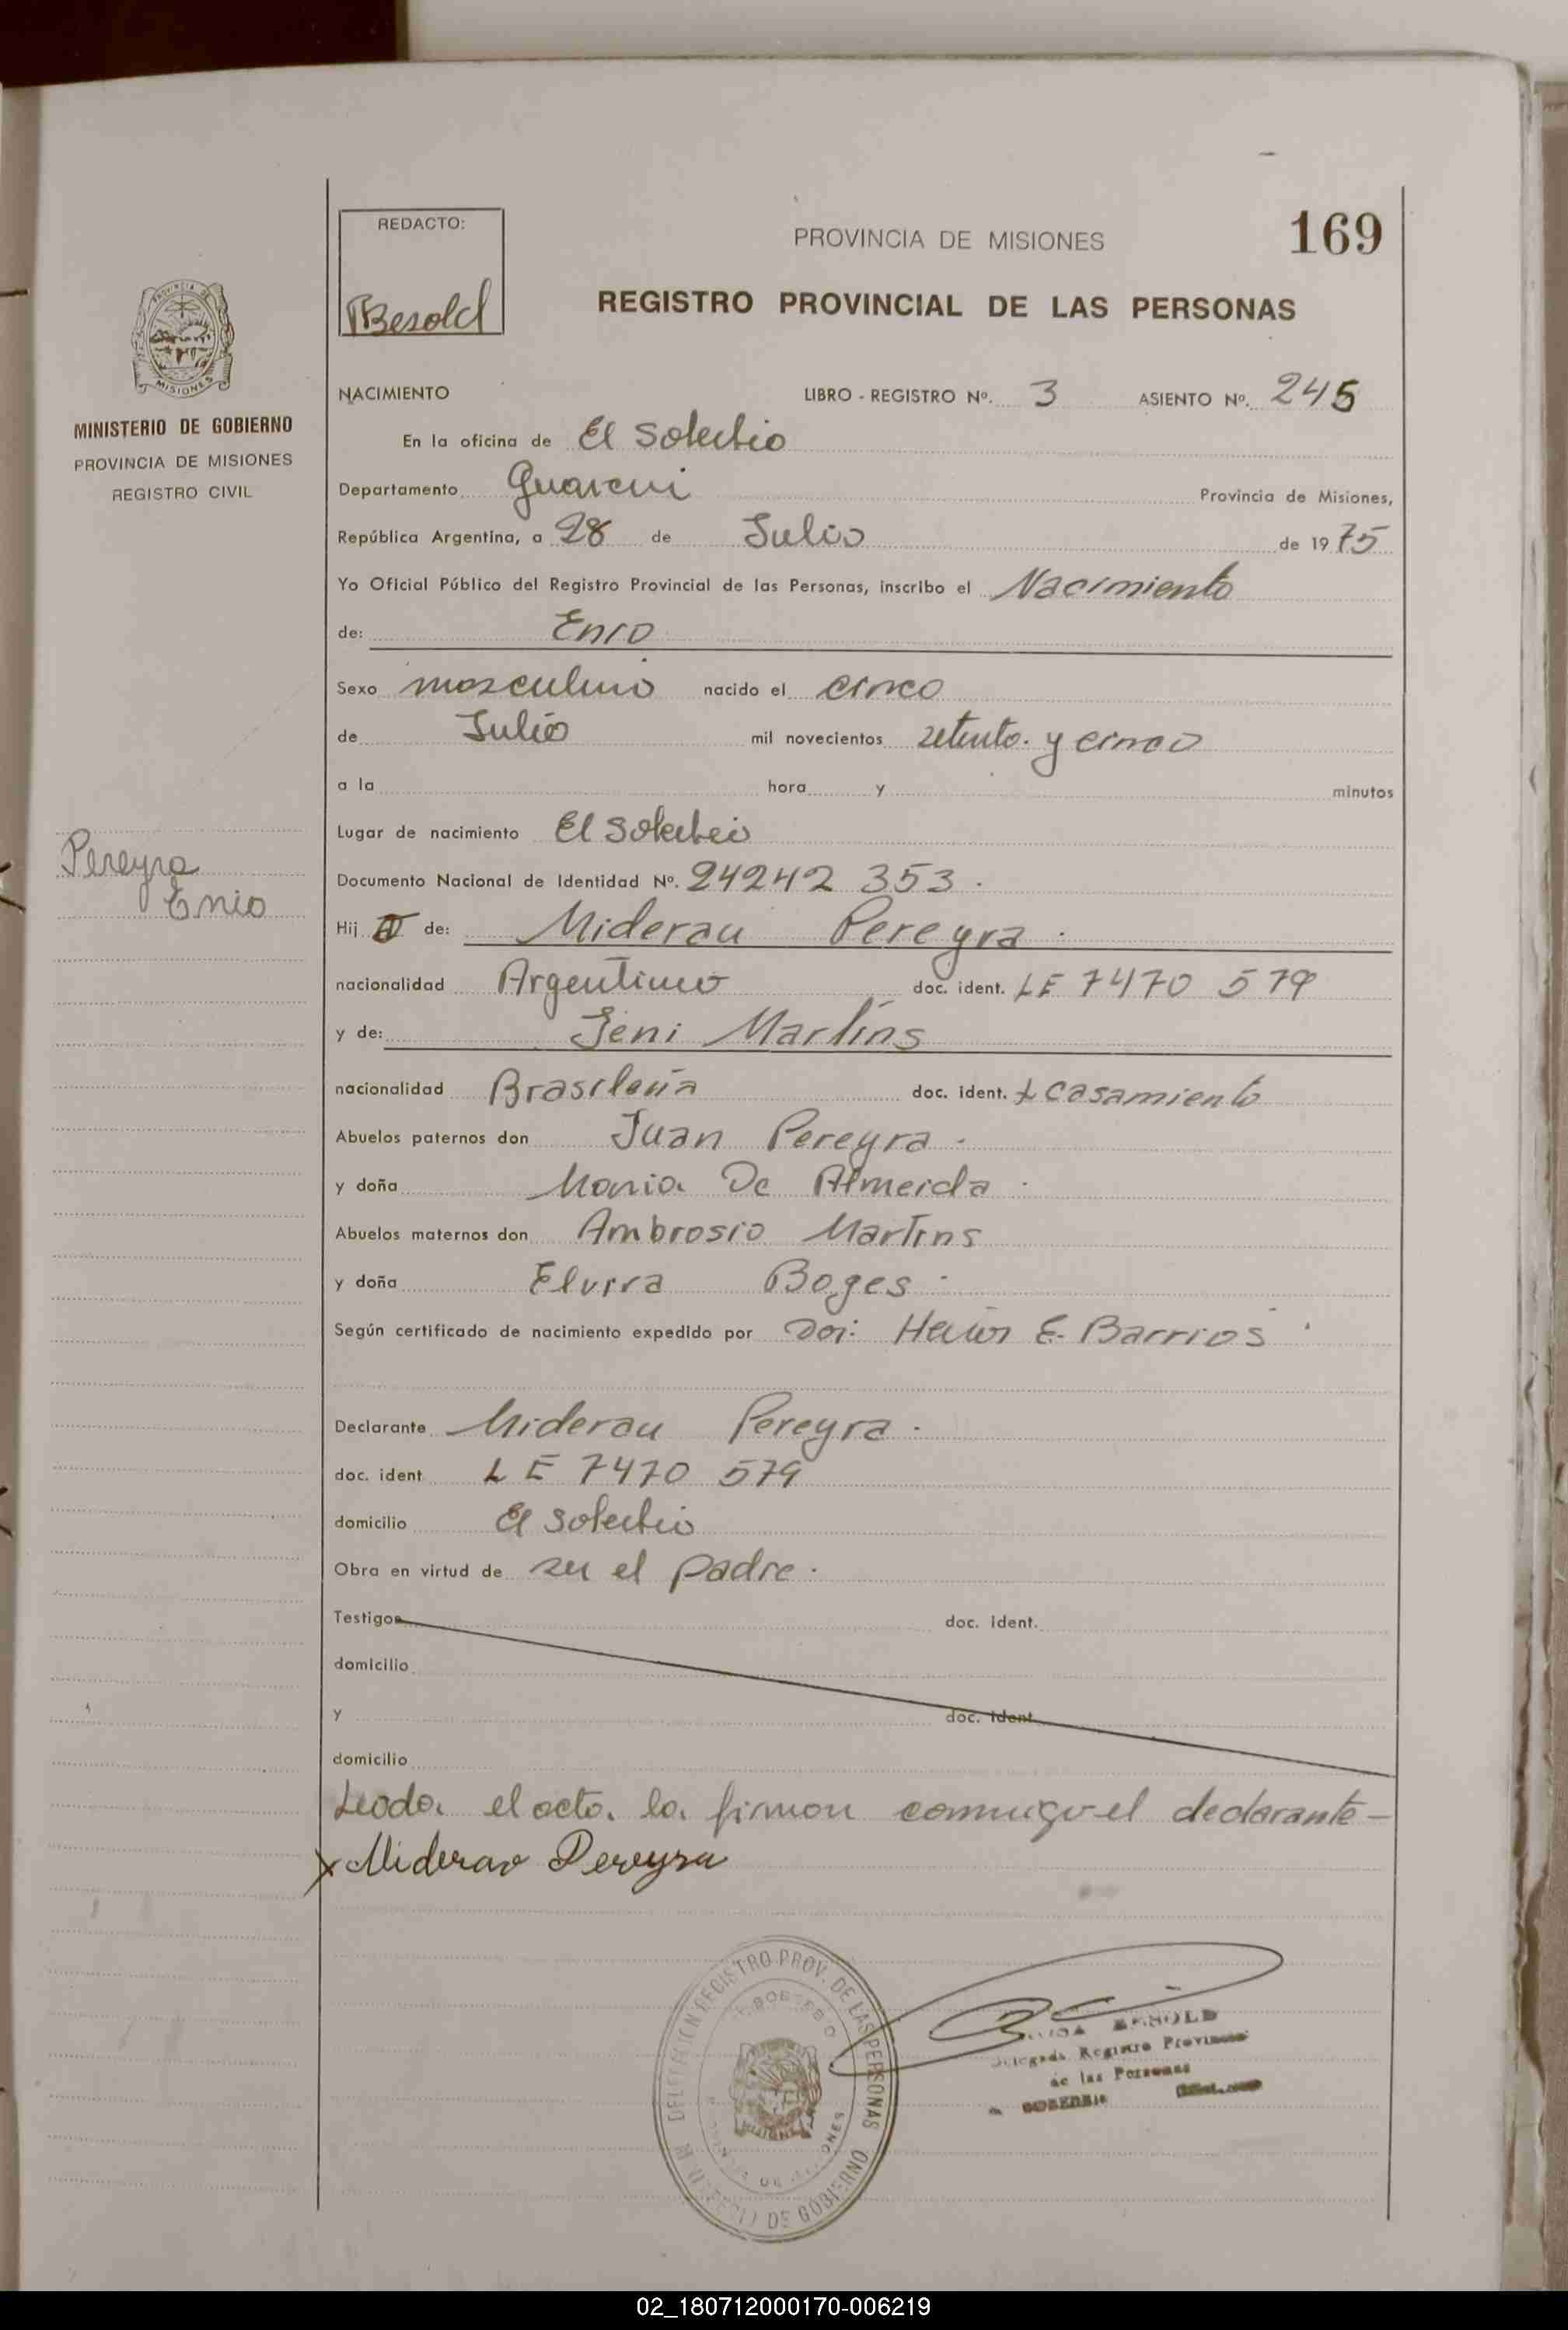 REDACTO:
Besold
PROVINCIA DE MISIONES
169
REGISTRO PROVINCIAL DE LAS PERSONAS
MISIONES
MINISTERIO DE GOBIERNO
PROVINCIA DE MISIONES
REGISTRO CIVIL
NACIMIENTO LIBRO - REGISTRO Nº. 3 ASIENTO Nº. 245
En la oficina de El Soberbio
Departamento Guarani Provincia de Misiones,
República Argentina, a 28 de Julio de 1975
Yo Oficial Público del Registro Provincial de las Personas, inscribo el Nacimiento
de: Enio
Sexo masculino nacido el cinco
de Julio mil novecientos setenta y cinco
a la hora y minutos
Lugar de nacimiento El Soberbio
Pereyra
Enio
Documento Nacional de Identidad Nº. 24242 353.
Hij o de: Miderau Pereyra.
nacionalidad Argentino doc. ident. LE 7470 579
y de: Jeni Martins
nacionalidad Brasileña doc. ident. L casamiento
Abuelos paternos don Juan Pereyra.
y doña Maria De Almeida.
Abuelos maternos don Ambrosio Martins
y doña Elvira Boges.
Según certificado de nacimiento expedido por E. Barrios
Declarante Miderau Pereyra.
doc. ident LE 7470 579
domicilio El Soberbio
Obra en virtud de ser el padre.
Testigos doc. ident.
domicilio
y doc. ident
domicilio
Leida el acta la firman conmigo el declarante-
x Miderao Pereyra
REGISTRO PROV. DE LAS PERSONAS
DE GOBIERNO
BESOLD
Delegada Registro Provincial
de las Personas
02_180712000170-006219